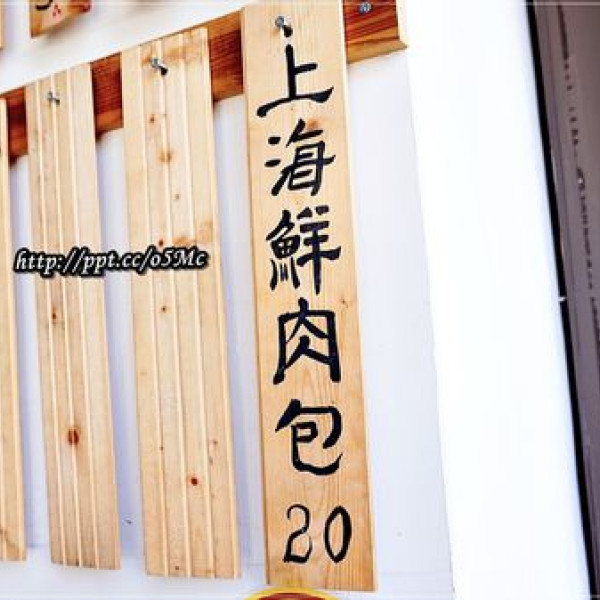 上海鮮肉包 20
http://ppt.cc/o5Mc